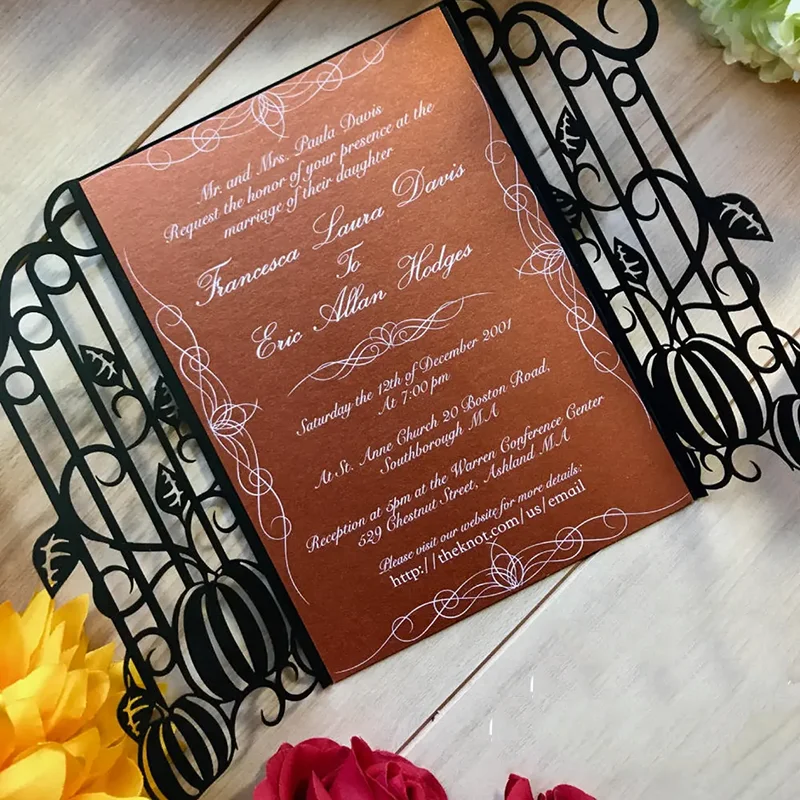 Mr. and Mrs. Paula Davis
Request the honor of your presence at the
marriage of their daughter
Francesca Laura Davis
To
Eric Allan Hodges
Saturday the 12th of December 2001
At 7:00 pm
At St. Anne Church 20 Boston Road,
Southborough MA
Reception at 5pm at the Warren Conference Center
529 Chestnut Street, Ashland MA
Please visit our website for more details:
http://theknot.com/us/email